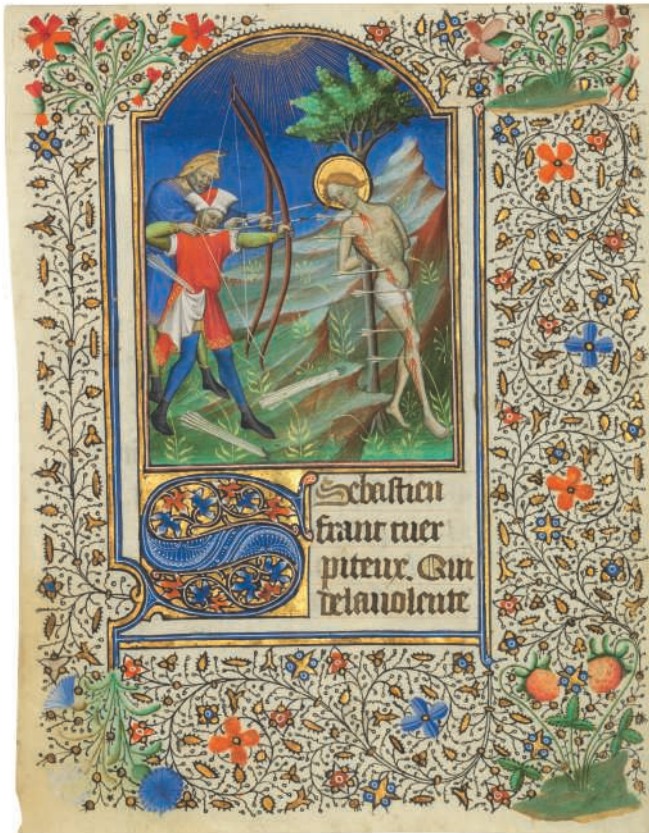 Sebastien
franc cuer
piteux. Qui
delauolente